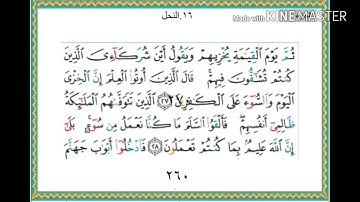 ١٦.النحل
Made with KINEMASTER
ثُمَّ يَوْمَ الْقِيٰمَةِ يُخْزِيْهِمْ وَيَقُوْلُ اَيْنَ شُرَكَاۤءِيَ الَّذِيْنَ
كُنْتُمْ تُشَاۤقُّوْنَ فِيْهِمْ ۗ قَالَ الَّذِيْنَ اُوْتُوا الْعِلْمَ اِنَّ الْخِزْيَ
الْيَوْمَ وَالسُّوْۤءَ عَلَى الْكٰفِرِيْنَ ٢٧ الَّذِيْنَ تَتَوَفّٰىهُمُ الْمَلٰۤىِٕكَةُ
ظَالِمِيْٓ اَنْفُسِهِمْ ۖ فَاَلْقَوُا السَّلَمَ مَا كُنَّا نَعْمَلُ مِنْ سُوْۤءٍ ۗ بَلٰٓى
اِنَّ اللّٰهَ عَلِيْمٌ بِمَا كُنْتُمْ تَعْمَلُوْنَ ٢٨ فَادْخُلُوْٓا اَبْوَابَ جَهَنَّمَ
٢٦٠